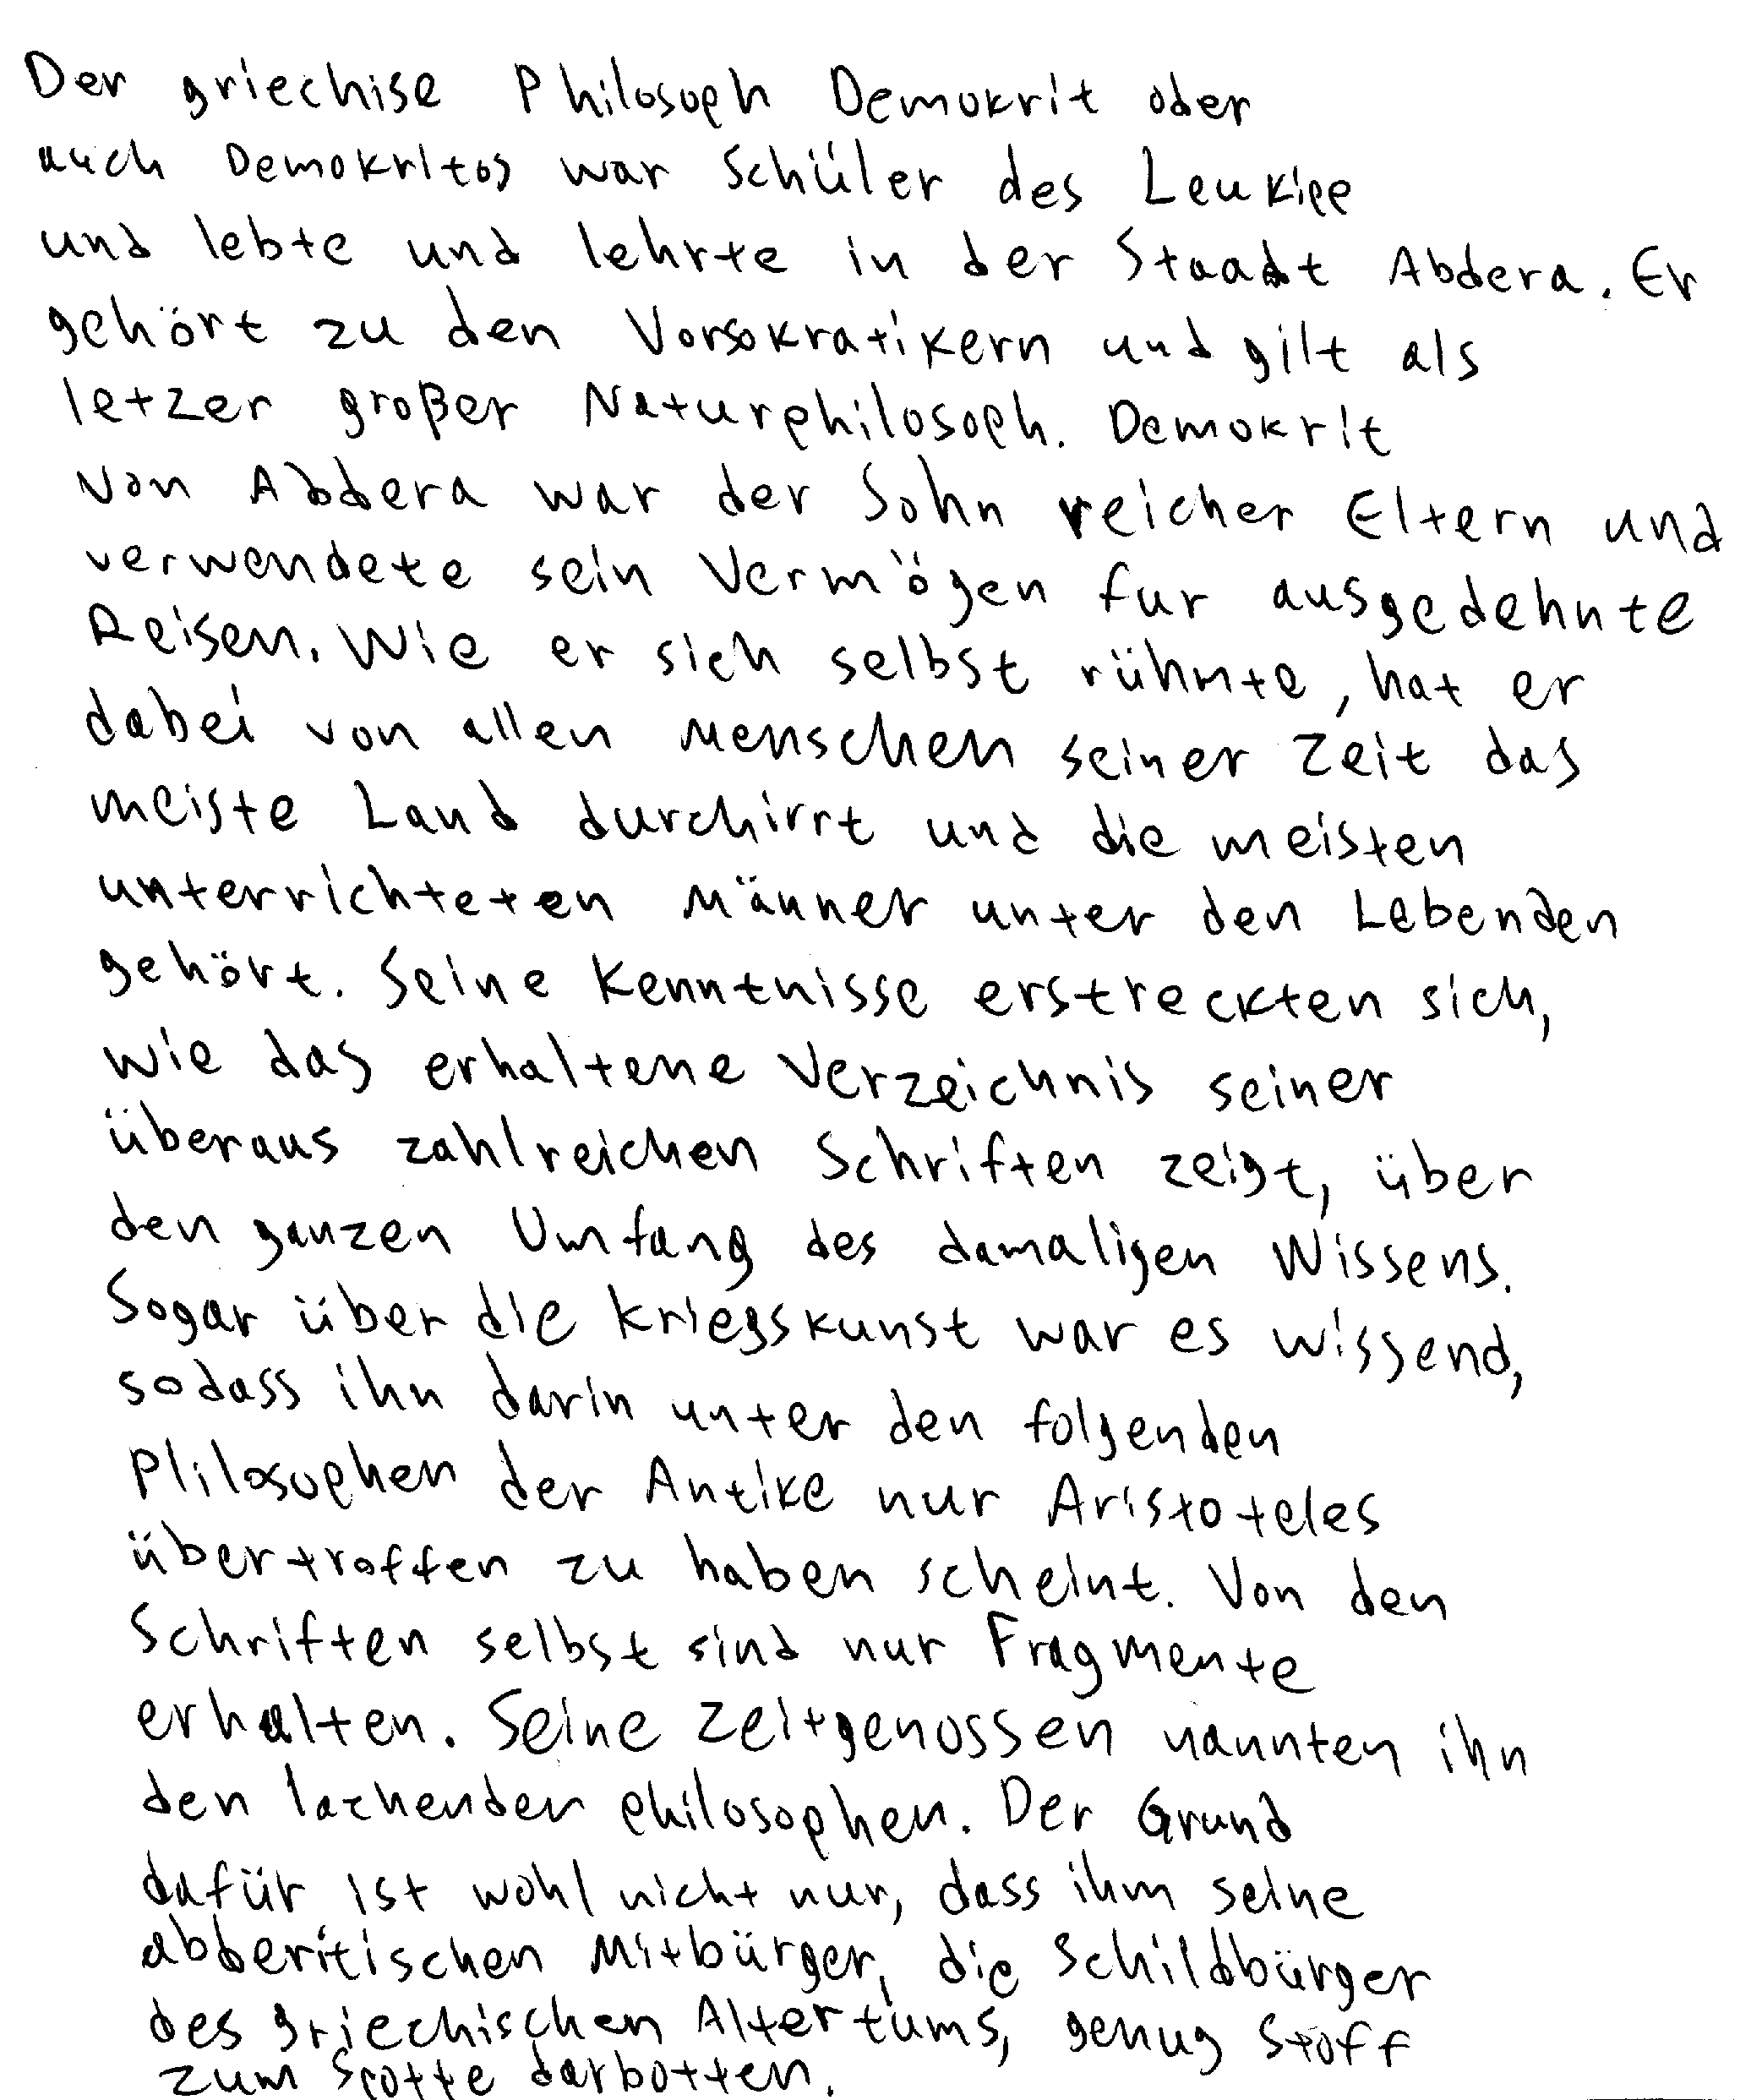 Der griechise Philosoph Demokrit oder
auch Demokritos war Schüler des Leukipp
und lebte und lehrte in der Staadt Abdera. Er
gehört zu den Vorsokratikern und gilt als
letzer großer Naturphilosoph. Demokrit
von Abdera war der Sohn reicher Eltern und
verwendete sein Vermögen fur ausgedehnte
Reisen. Wie er sich selbst rühmte, hat er
dabei von allen Menschen seiner Zeit das
meiste Land durchirrt und die meisten
unterrichteten Männer unter den Lebenden
gehört. Seine Kenntnisse erstreckten sich,
wie das erhaltene Verzeichnis seiner
überaus zahlreichen Schriften zeigt, über
den ganzen Umfang des damaligen Wissens.
Sogar über die Kriegskunst war es wissend,
sodass ihn darin unter den folgenden
Plilosophen der Antike nur Aristoteles
übertroffen zu haben scheint. Von den
Schriften selbst sind nur Fragmente
erhalten. Seine Zeitgenossen nannten ihn
den lachender Philosophen. Der Grund
dafür ist wohl nicht nur, dass ihm seine
abderitischen Mitbürger, die Schildbürger
des griechischen Altertums, genug Stoff
zum Spotte darbotten.